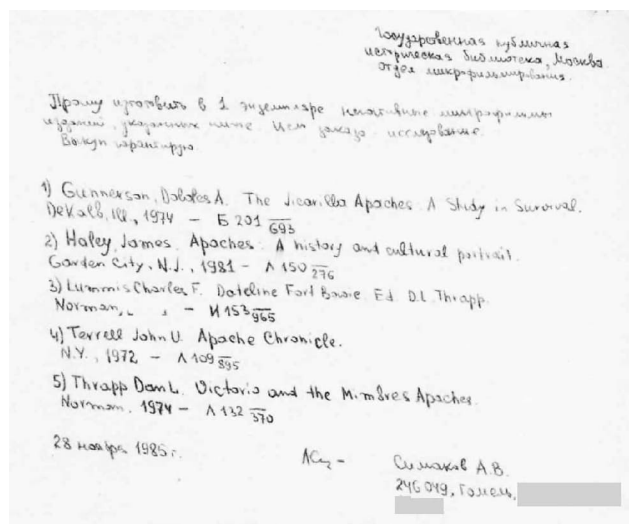 Государственная публичная
историческая библиотека, Москва.
Отдел микрофильмирования.
Прошу изготовить в 1 экземпляре негативные микрофильмы
изданий, указанных ниже. Цель заказа - исследование.
Выкуп гарантирую.
1) Gunnerson, Dolores A. The Jicarilla Apaches. A Study in Survival.
DeKalb, Ill., 1974 – Б 201/693
2) Haley, James. Apaches: A history and cultural portrait.
Garden City, N.J., 1981 – Л 150/276
3) Lummis Charles F. Dateline Fort Bowie. Ed. D.L. Thrapp.
Norman, , – И 153/965
4) Terrell John U. Apache Chronicle.
N.Y., 1972 – Л 109/895
5) Thrapp Dan L. Victorio and the Mimbres Apaches.
Norman. 1974 – Л 132/370
28 ноября 1985 г.
Симаков А.В.
246049, Гомель,